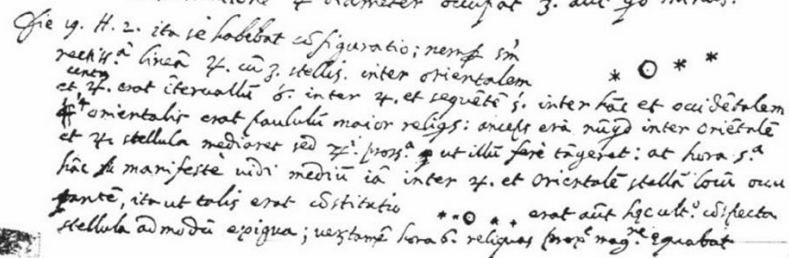 Die 19. H. 2. ita se habebat cõfiguratio; nemp sm̃
rectiss.ᵃ lineã ♃. cũ 3. stellis. inter orientalem
et ♃. erat ĩtervallũ 6. inter ♃. et sequẽtẽ 5. inter hãc et occidẽtalem
orientalis erat paululũ maior reliqs: anceps erã nũqd inter oriẽtalẽ
et ♃. stellula mediaret sed ♃ⁱ prox.ᵃ ut illũ ferè tãgeret: at hora 5.ᵃ
hãc manifestè vidi mediũ iã inter ♃. et orientalẽ stellã locũ occu
pantẽ, ita ut talis erat cõstitutio * * O * * erat aũt hęc ult.º cõspecta
stellula admodũ exigua; verũtamẽ hora 6. reliquas prop.ᵉ mag.ⁿᵉ equabat